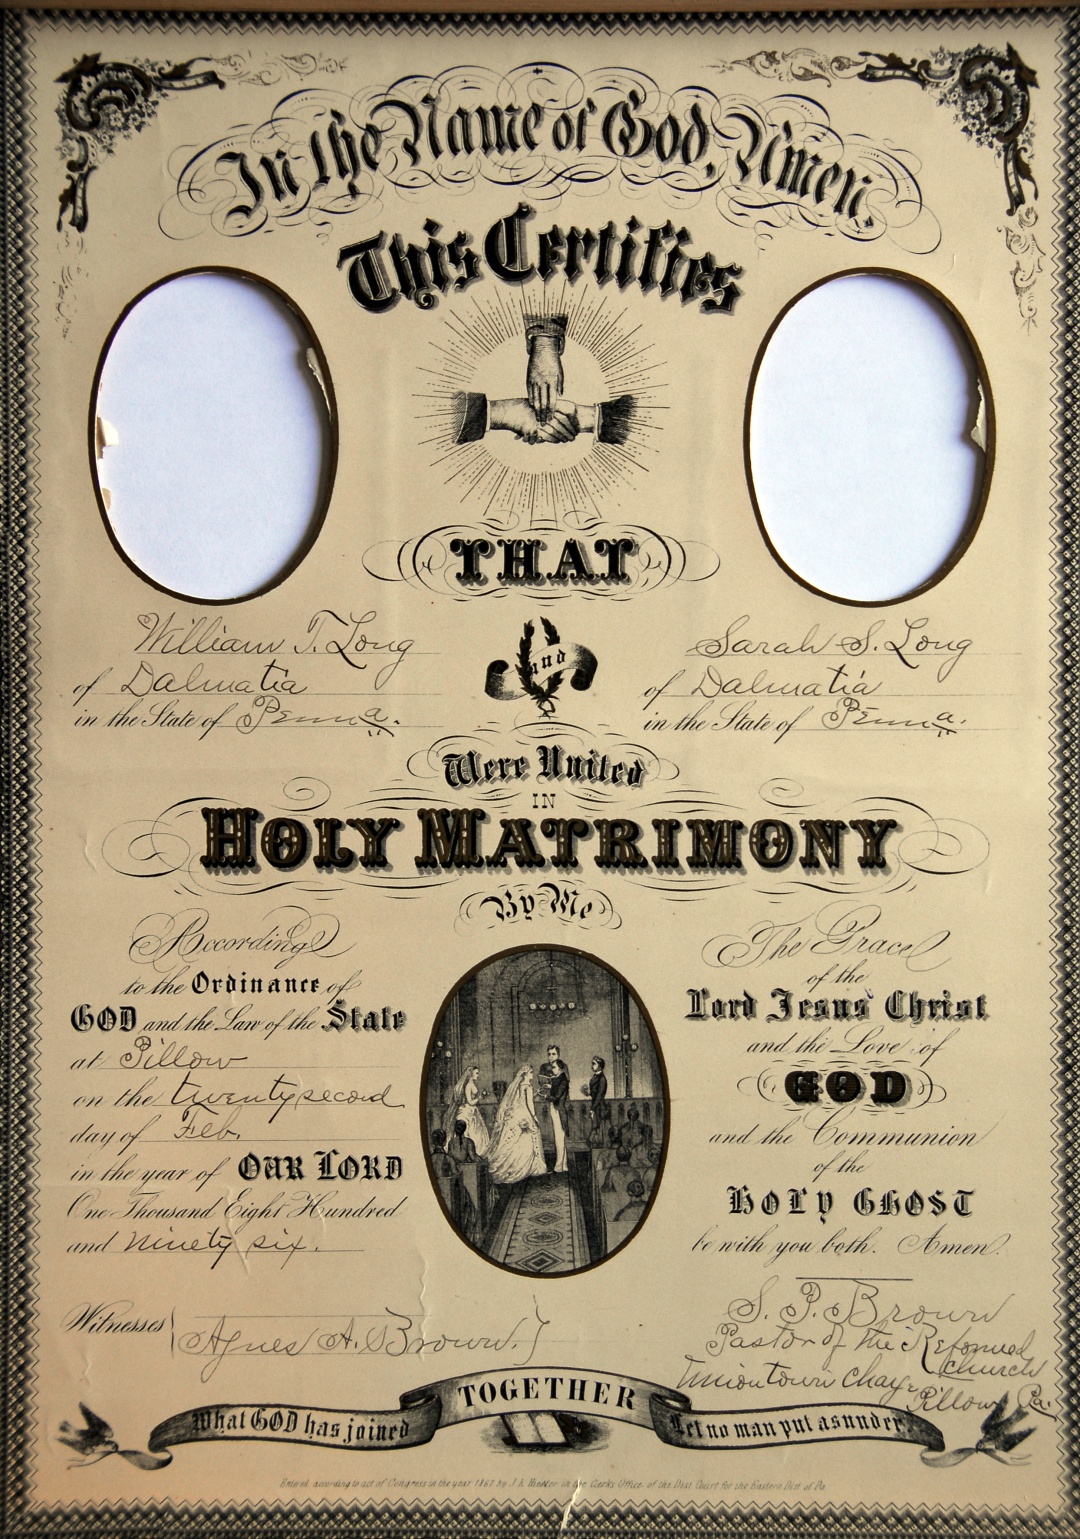 In the Name of God, Amen.
This Certifies
THAT
William T. Long
of Dalmatia
in the State of Penna.
and
Sarah S. Long
of Dalmatia
in the State of Penna.
Were United
IN
HOLY MATRIMONY
By Me
According
to the Ordinance of
GOD and the Law of the State
at Pillow
on the twenty second
day of Feb.
in the year of OUR LORD
One Thousand Eight Hundred
and ninety six.
The Grace
of the
Lord Jesus Christ
and the Love of
GOD
and the Communion
of the
HOLY GHOST
be with you both. Amen.
Witnesses
Agnes A. Brown.
S. P. Brown
Pastor of the Reformed
Church
Uniontown
Pillow Pa.
What GOD has joined
TOGETHER
Let no man put asunder.
Entered according to act of Congress in the year 1867 by J. R. in the Clerks Office of the Dist Court for the Eastern Dist of Pa